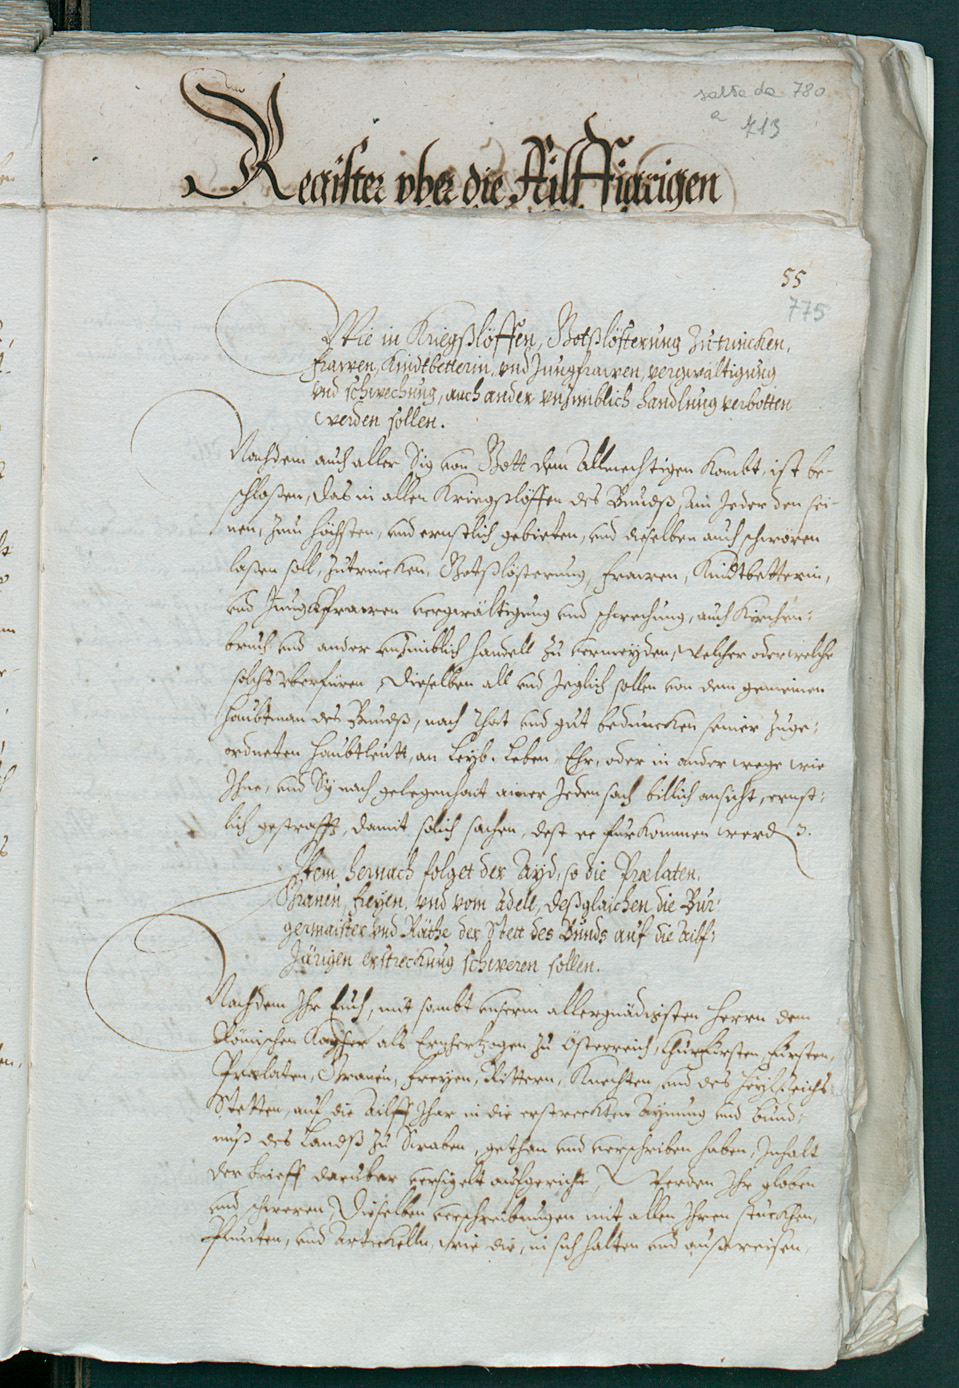 salta da 780
a 713
Register vber die Ailff Jarigen
55
775
Wie in Kriegßlöffen, Gotßlösterung Zutrincken,
frawen, Kindtbetterin, vnd Jungfrawen, vergwältigung
vnd schwechung, auch ander vnzimblich handlung verbotten
werden sollen.
Nachdem auch aller Sig von Gott dem Allmechtigen kombt, ist be-
schloßen, das in allen Kriegßlöffen des Bundß, ain Jeder den sei-
nen, zum höchsten, vnd ernstlich gebieten, vnd dieselben auch schwören
laßen soll, Zutrincken, Gotßlösterung, frawen, Kindtbetterin,
vnd Jungkfrawen vergwältigung vnd schwechung, auch Kirchen-
bruch vnd ander vnzimblich handell zu vermeyden, welcher oder welche
solchs vberfüren, Dieselben all vnd Jeglich sollen von dem gemeinen
haubtman des Bundß, nach That vnd gut beduncken seiner zuge-
ordneten haubtleutt, an Leyb, Leben, Ehr, oder in ander wege wie
Jhne, vnd Sy nach gelegenhait ainer Jeden sach billich ansicht, ernst-
lich gestrafft, damit solich sachen, dest ee furkommen werd.
Item hernach folget der Ayd, so die Prælaten,
Grauen, freyen, vnd vom Adell, deßgleichen die Bur-
germaister vnd Räthe der Stett des Bunds auf die ailf-
Järigen erstreckung schweren sollen.
Nachdem Jhr Euch, mit sambt vnserm allergnädigsten Herrn dem
Römischen Kayser als Ertzhertzogen zu Österreich, Churfürsten, Fürsten,
Prælaten, Grauen, freyen, Rittern, Knechten, vnd des Heyl: Reichs
Stetten, auf die Ailff Jhar in die erstreckten Aynung vnd Bund-
nuß des Landß zu Swaben, gethan vnd verschriben haben, Jnhalt
der brieff darüber versigelt außgericht, Werden Jhr globen
vnd schweren, Dieselben verschreibungen mit allen Jhren stuckhen,
Puncten, vnd Artickelln, wie die, in sich halten vnd außweisen,